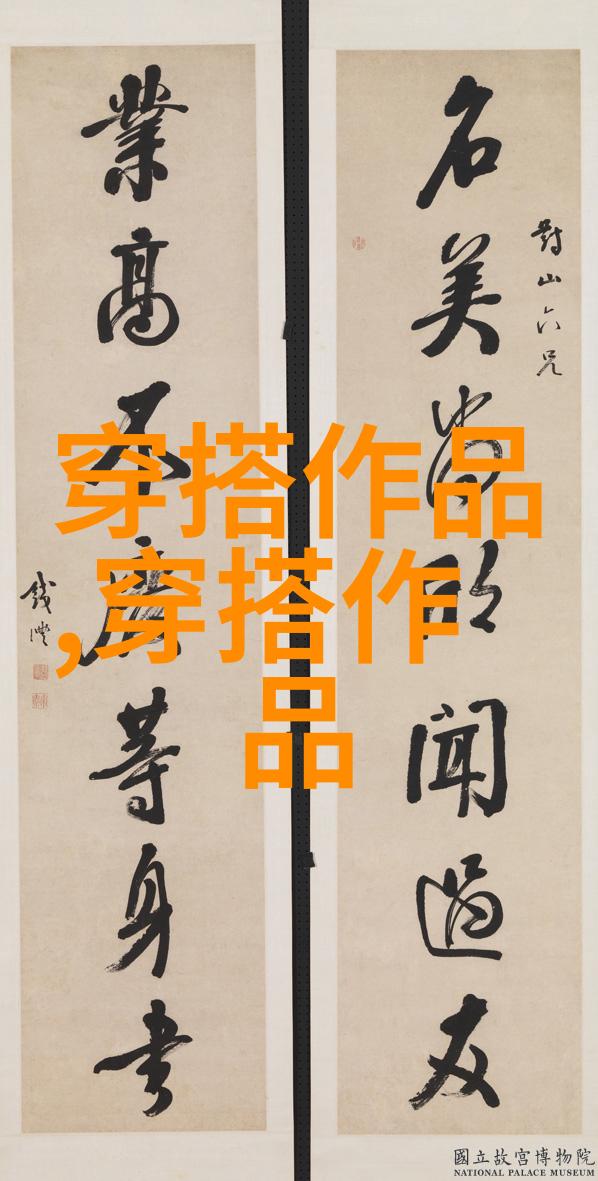 對山六兄
名美尚聞過友
業高不廢等身書
錢灃
穿搭作品
,穿搭作
品
國立故宮博物院
NATIONAL PALACE MUSEUM